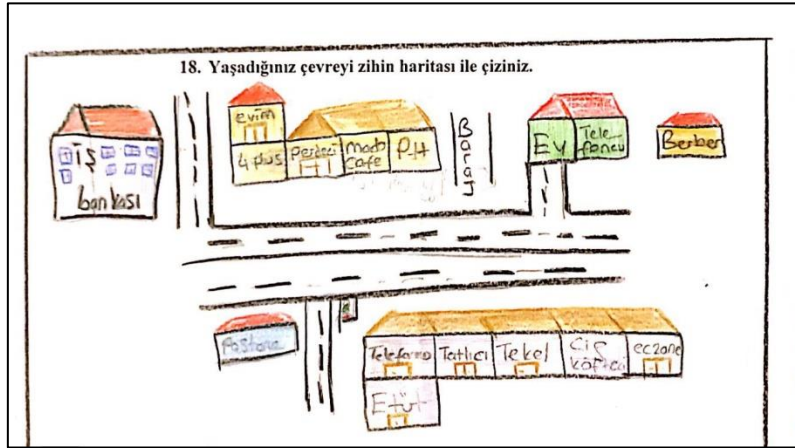 18. Yaşadığınız çevreyi zihin haritası ile çiziniz.
evim
4 plus
Perdeci
mado
cafe
P.H
Baraj
Ev
Tele
foncu
Berber
İŞ
bankası
Pastane
Telefoncu
Tatlıcı
Tekel
Çiğ
köfteci
eczane
Etüt